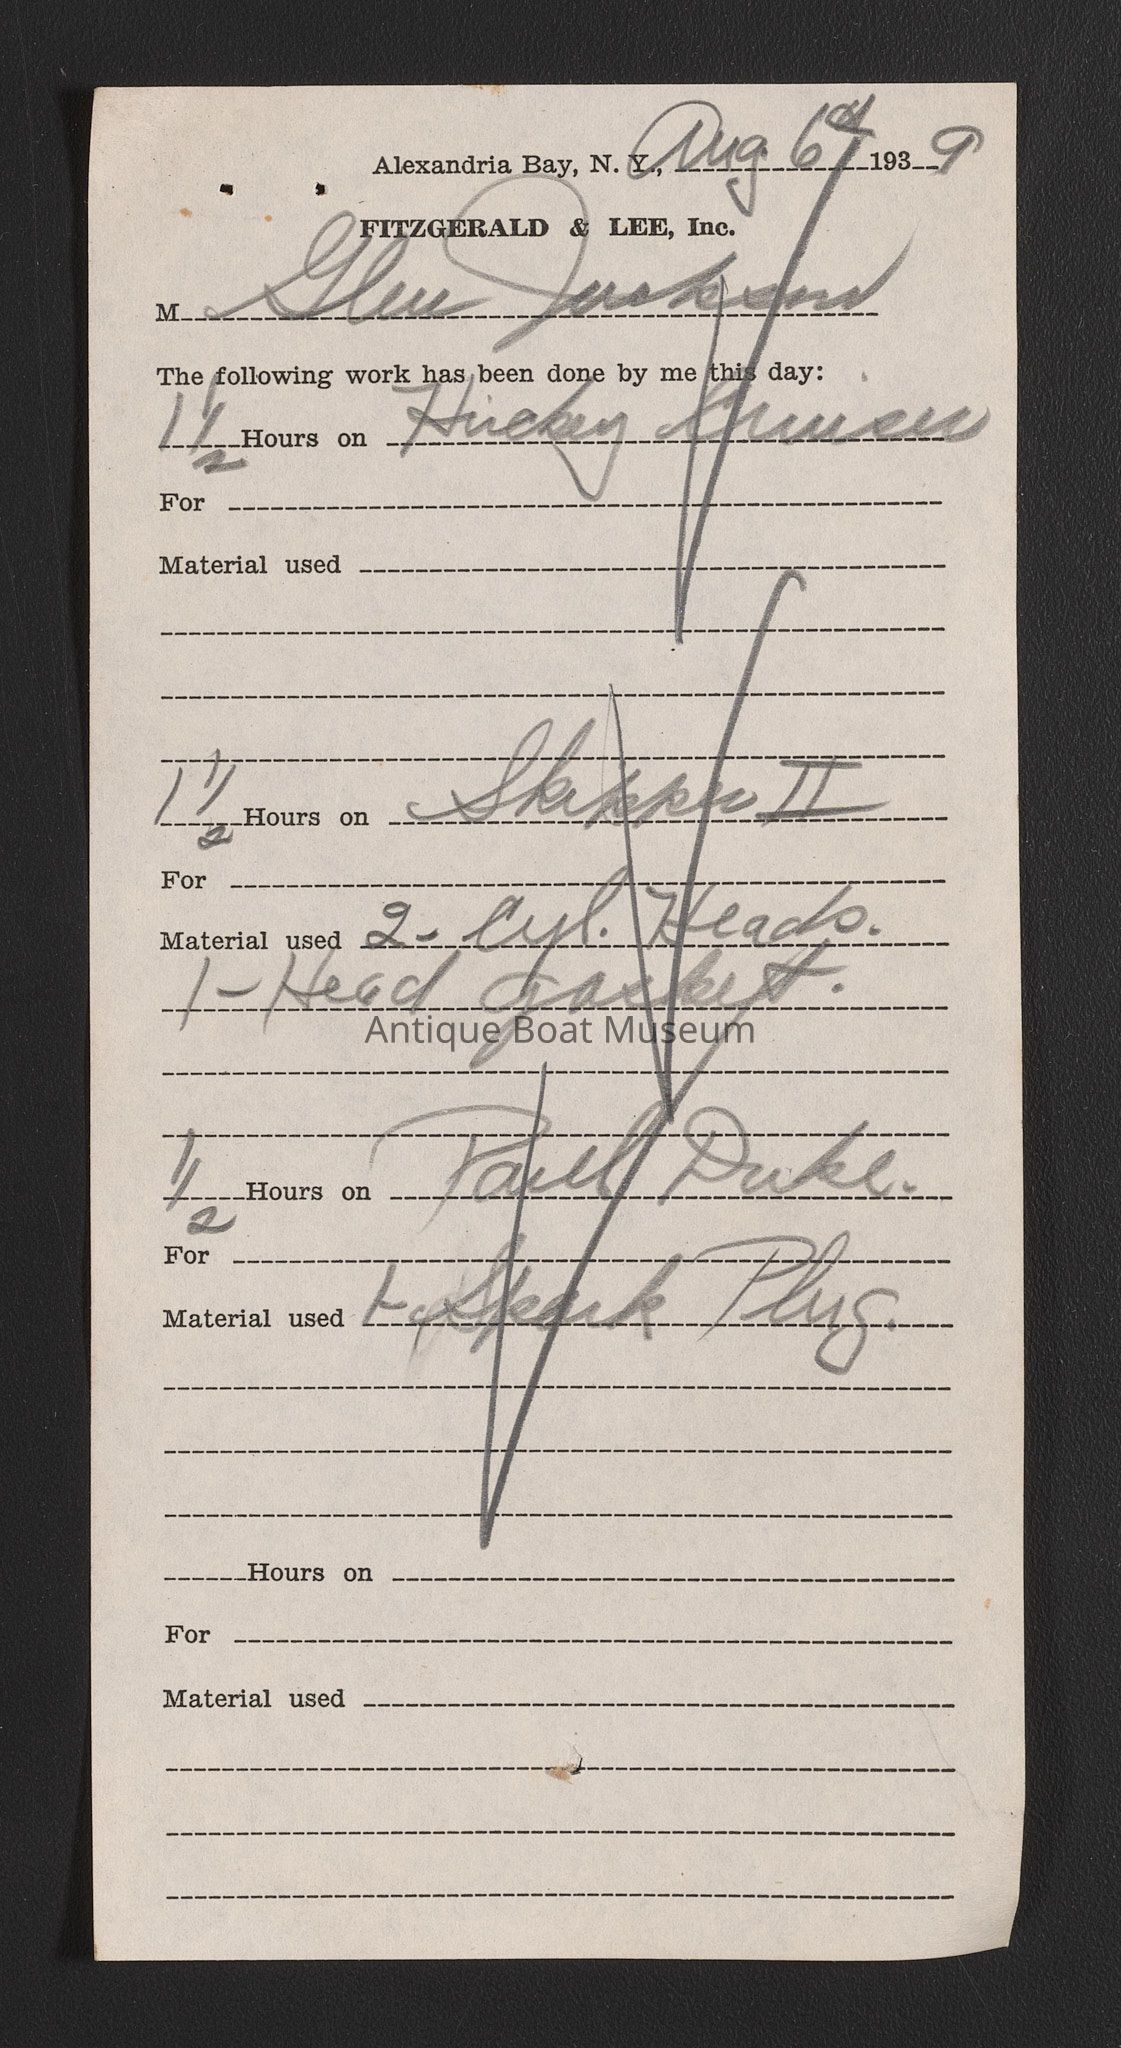 Alexandria Bay, N. Y., Aug. 6th 1939
FITZGERALD & LEE, Inc.
M Glen Jackson
The following work has been done by me this day:
1 1/2 Hours on Huckey
For
Material used
1 1/2 Hours on Skipper II
For
Material used 2 - Cyl. Heads.
1 - Head gasket.
Antique Boat Museum
1/2 Hours on Paul Duke.
For
Material used 1 - Spark Plug.
Hours on
For
Material used